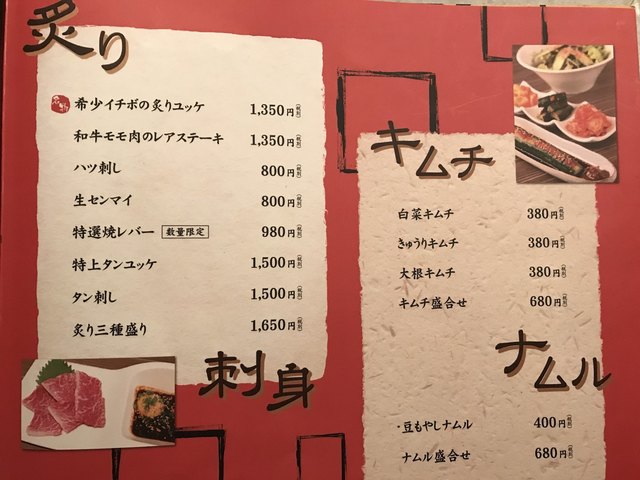 炙り
希少イチボの炙りユッケ 1,350円(税別)
和牛モモ肉のレアステーキ 1,350円(税別)
ハツ刺し 800円(税別)
生センマイ 800円(税別)
特選焼レバー 数量限定 980円(税別)
特上タンユッケ 1,500円(税別)
タン刺し 1,500円(税別)
炙り三種盛り 1,650円(税別)
刺身
キムチ
白菜キムチ 380円(税別)
きゅうりキムチ 380円(税別)
大根キムチ 380円(税別)
キムチ盛合せ 680円(税別)
ナムル
・豆もやしナムル 400円(税別)
ナムル盛合せ 680円(税別)